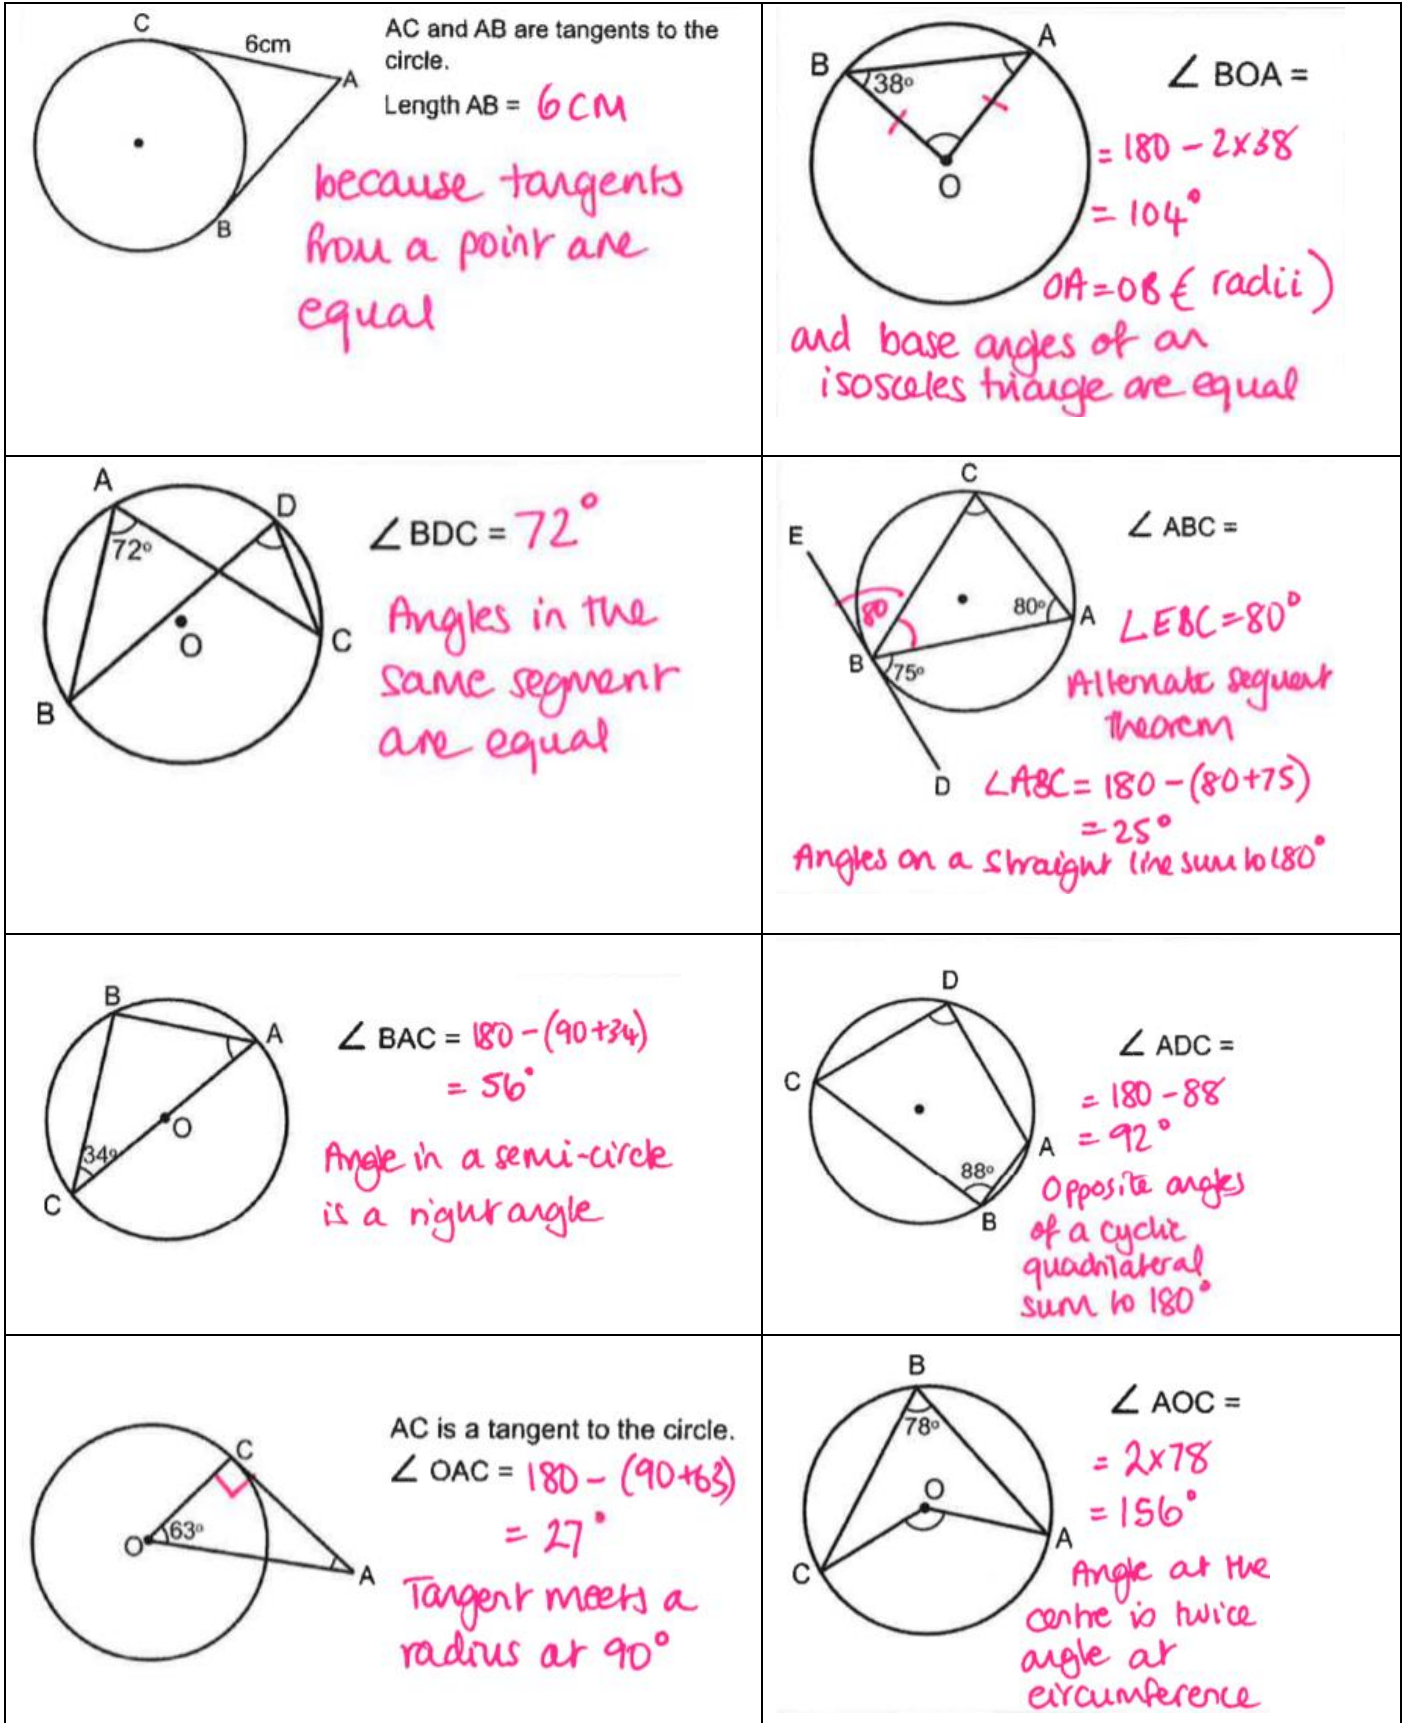 C
6cm
A
B
AC and AB are tangents to the
circle.
Length AB = 6cm
because tangents
from a point are
equal
B
A
38°
O
∠ BOA =
= 180 - 2x38
= 104°
OA=OB ( radii )
and base angles of an
isosceles triangle are equal
A
D
72°
O
C
B
∠ BDC = 72°
Angles in the
same segment
are equal
C
E
80
80°
A
B
75°
D
∠ ABC =
∠EBC=80°
Alternate segment
theorem
∠ABC = 180 - (80+75)
= 25°
Angles on a straight line sum to 180°
B
A
O
34°
C
∠ BAC = 180 - (90+34)
= 56°
Angle in a semi-circle
is a right angle
D
C
A
88°
B
∠ ADC =
= 180 - 88
= 92°
Opposite angles
of a cyclic
quadrilateral
sum to 180°
C
O
63°
A
AC is a tangent to the circle.
∠ OAC = 180 - (90+63)
= 27°
Tangent meets a
radius at 90°
B
78°
O
A
C
∠ AOC =
= 2x78
= 156°
Angle at the
centre is twice
angle at
circumference